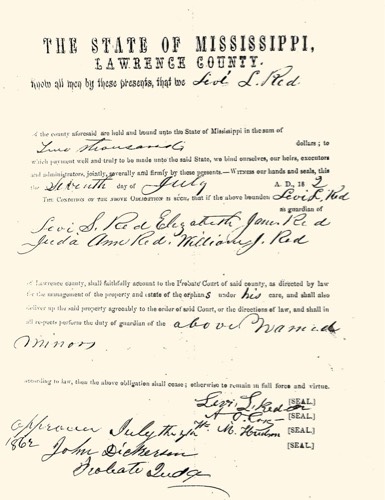 THE STATE OF MISSISSIPPI,
LAWRENCE COUNTY.
Know all men by these presents, that we Levi L. Red
of the county aforesaid are held and bound unto the State of Mississippi in the sum of
Two thousands dollars; to
which payment well and truly to be made unto the said State, we bind ourselves, our heirs, executors
and administrators, jointly, severally and firmly by these presents.—Witness our hands and seals, this
the Seventh day of July A. D., 18 2
The Condition of the above Obligation is such, that if the above bounden Levi L. Red
as guardian of
Levi S. Red Elizabeth Jane Red
Juda Ann Red. William J. Red
of Lawrence county, shall faithfully account to the Probate Court of said county, as directed by law
for the management of the property and estate of the orphans under his care, and shall also
deliver up the said property agreeably to the order of said Court, or the directions of law, and shall in
all respects perform the duty of guardian of the above Named
Minors
according to law, then the above obligation shall cease; otherwise to remain in full force and virtue.
Levi L. Red [SEAL.]
A. O. Cox [SEAL.]
Wm M. Hutson [SEAL.]
[SEAL.]
approved July the 7th
1862
John Dickerson
Probate Judge